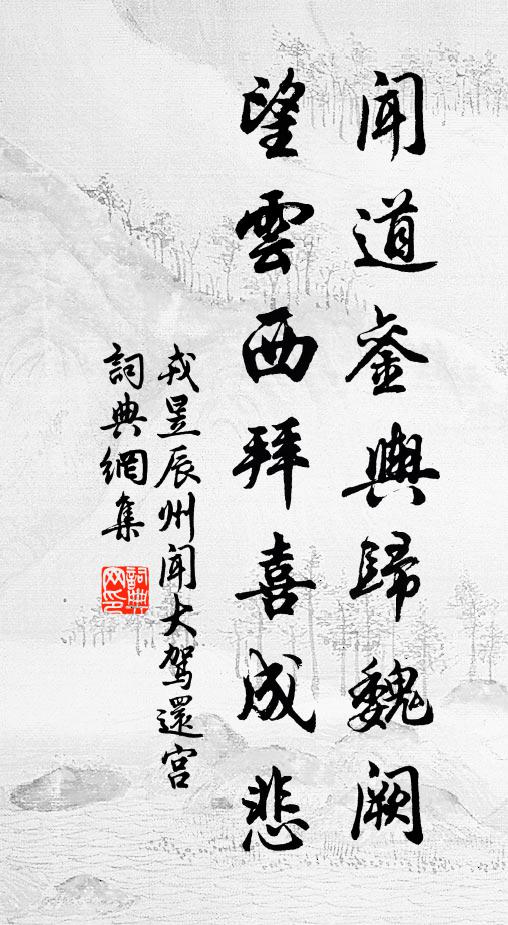 闻道銮輿歸魏阙
望雲西拜喜成悲
戎昱辰州闻大驾還宫
詞典網集
詞典網印